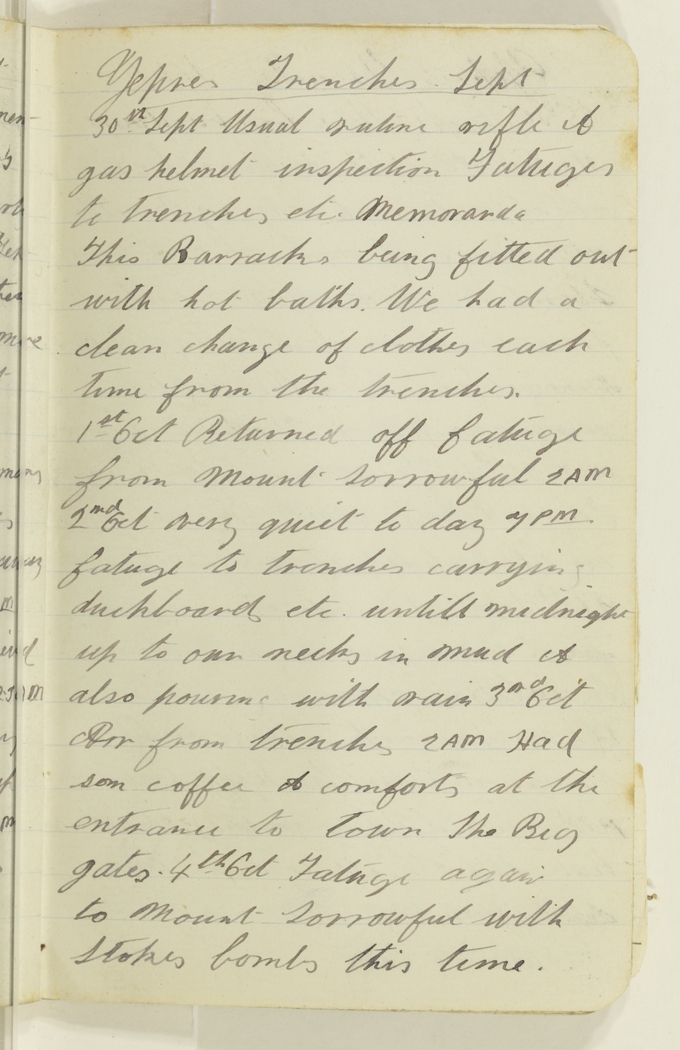 Yepres Trenches. Sept
30th Sept Usual rutine rifle &
gas helmet inspection Fatuges
to trenches etc. Memoranda
This Barracks being fitted out
with hot baths. We had a
clean change of clothes each
time from the trenches.
1st Oct Returned off fatuge
from Mount Sorrowful 2AM
2nd Oct very quiet to day 7PM
fatuge to trenches carrying
duckboards etc. untill midnight
up to our necks in mud &
also pouring with rain 3rd Oct
Arr from trenches 2AM Had
som coffee & comforts at the
entrance to town The Big
gates. 4th Oct Fatuge again
to Mount Sorrowful with
Stokes bombs this time.